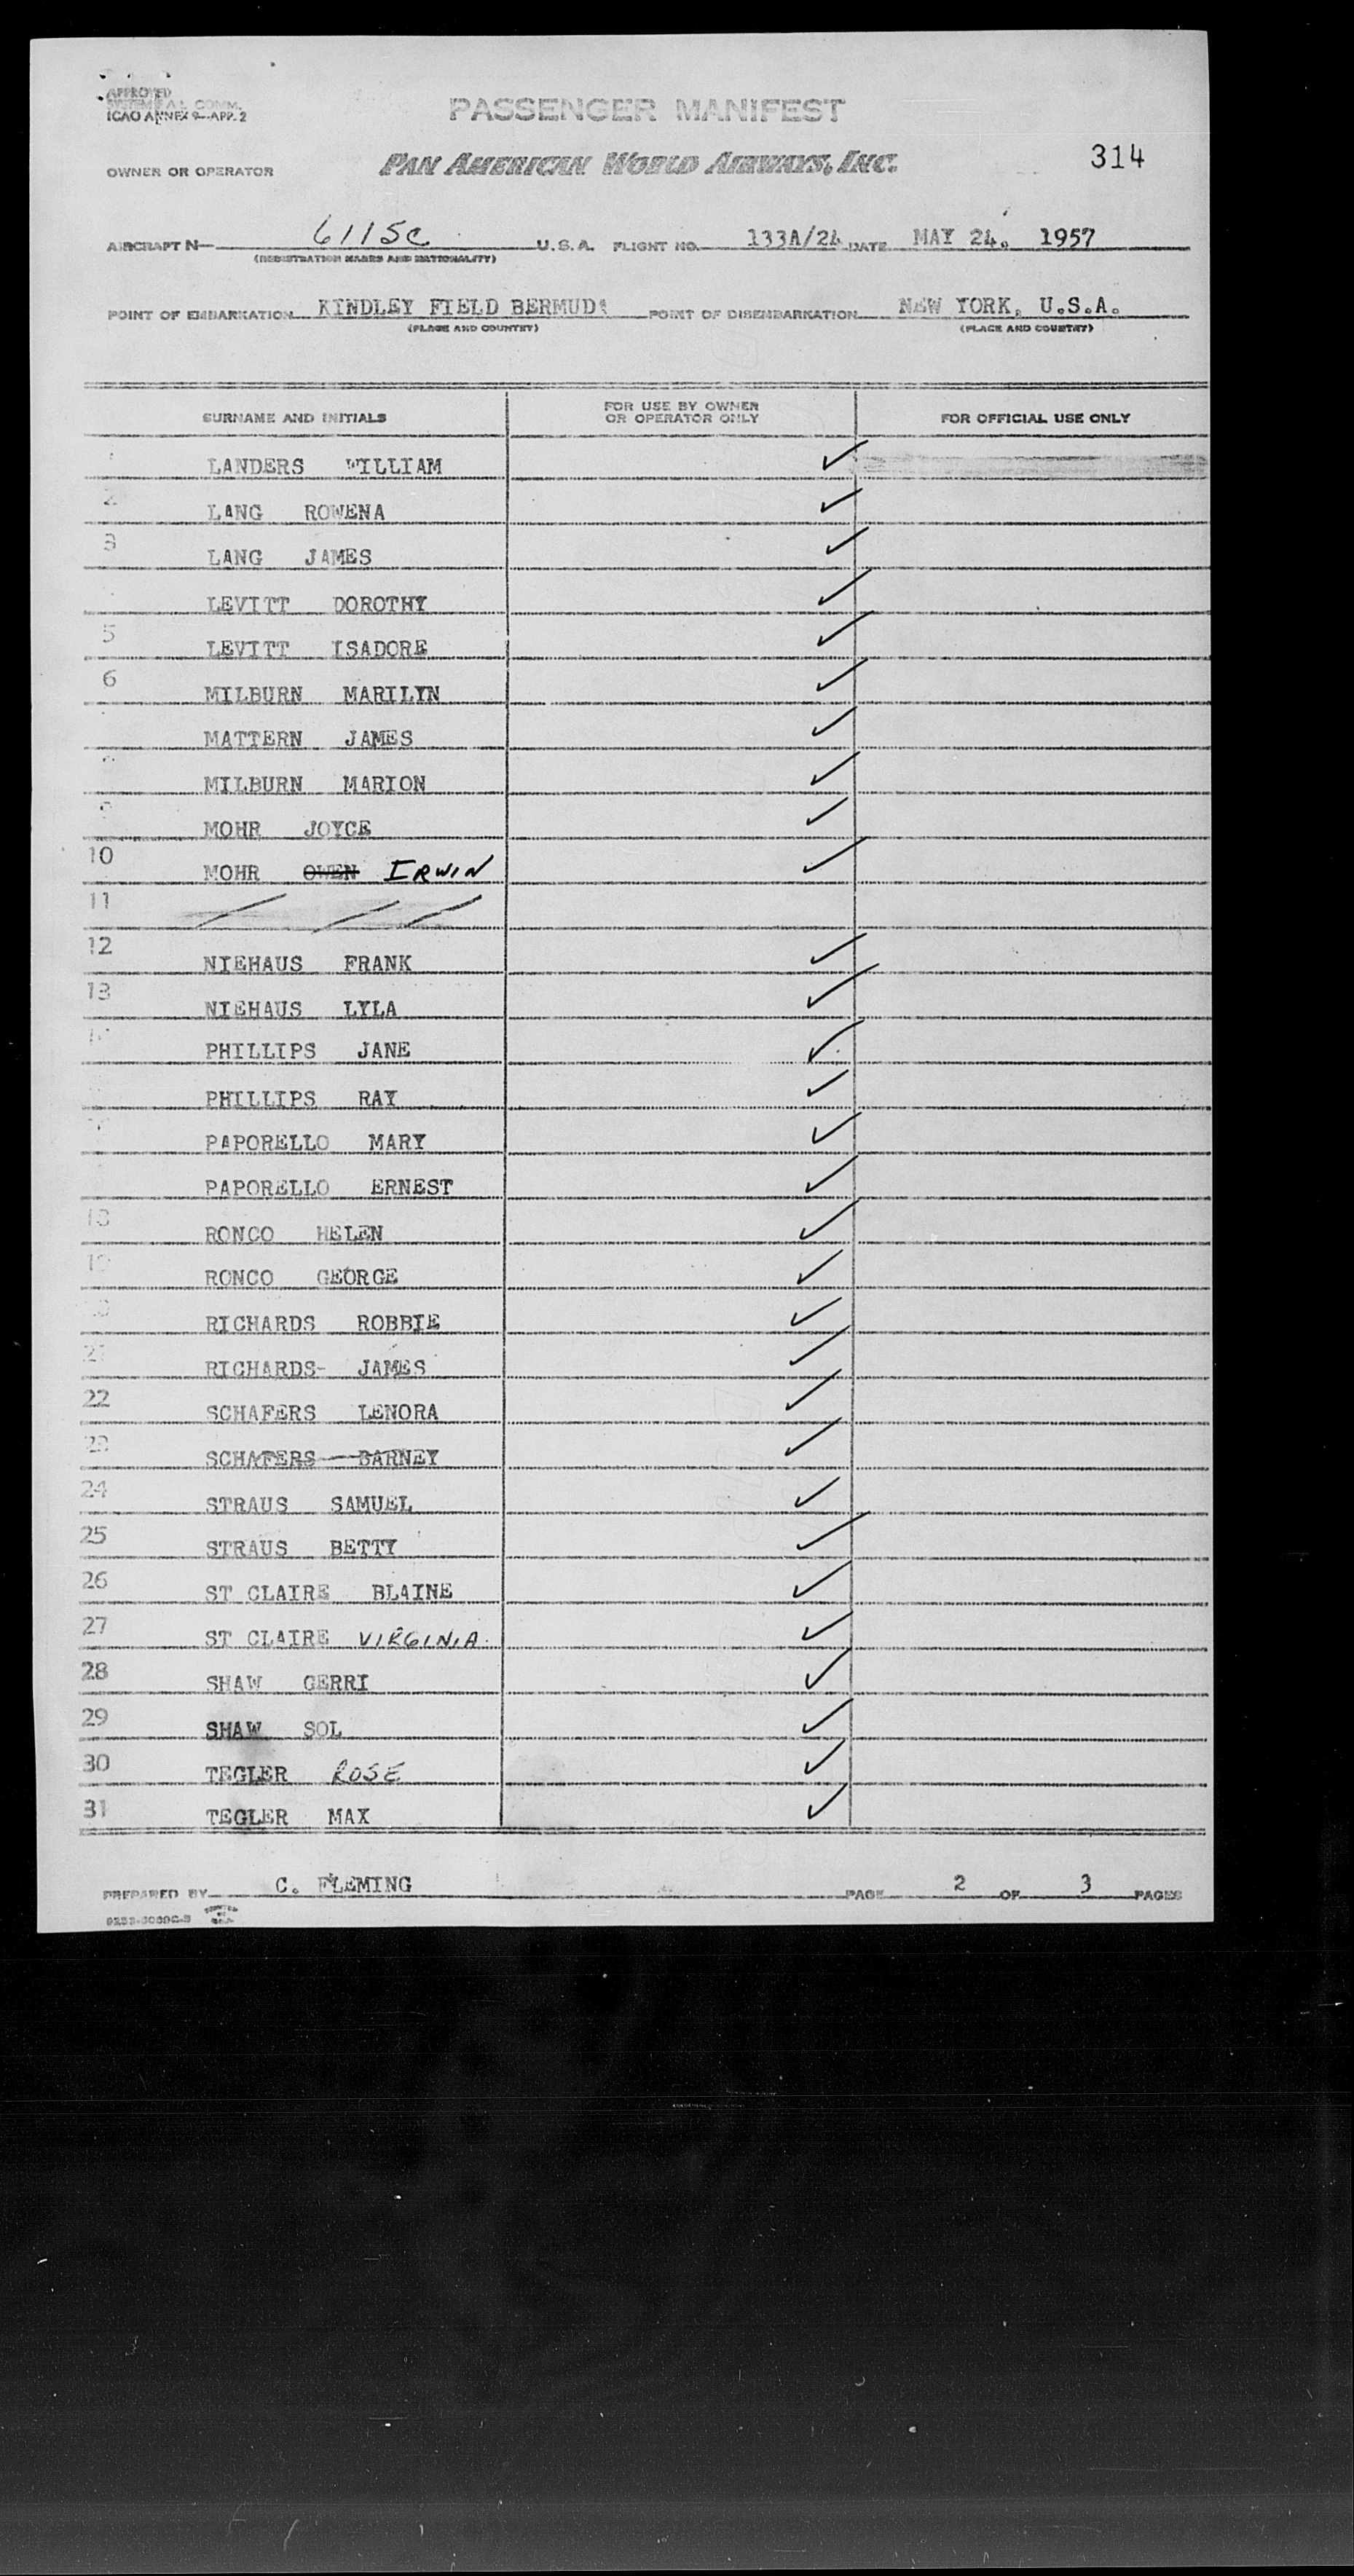 APPROVED
SYSTEM F.A.L. COMM.
ICAO ANNEX 9-APP. 2
PASSENGER MANIFEST
OWNER OR OPERATOR PAN AMERICAN WORLD AIRWAYS, INC. 314
AIRCRAFT N— 6115C U.S.A. FLIGHT NO. 133A/24 DATE MAY 24, 1957
(REGISTRATION MARKS AND NATIONALITY)
POINT OF EMBARKATION KINDLEY FIELD BERMUDA POINT OF DISEMBARKATION NEW YORK, U.S.A.
(PLACE AND COUNTRY) (PLACE AND COUNTRY)
SURNAME AND INITIALS FOR USE BY OWNER OR OPERATOR ONLY FOR OFFICIAL USE ONLY
LANDERS WILLIAM ✓
2 LANG ROWENA ✓
3 LANG JAMES ✓
LEVITT DOROTHY ✓
5 LEVITT ISADORE ✓
6 MILBURN MARILYN ✓
MATTERN JAMES ✓
MILBURN MARION ✓
MOHR JOYCE ✓
10 MOHR OWEN IRWIN ✓
11
12 NIEHAUS FRANK ✓
13 NIEHAUS LYLA ✓
PHILLIPS JANE ✓
PHILLIPS RAY ✓
PAPORELLO MARY ✓
PAPORELLO ERNEST ✓
18 RONCO HELEN ✓
19 RONCO GEORGE ✓
RICHARDS ROBBIE ✓
21 RICHARDS- JAMES ✓
22 SCHAFERS LENORA ✓
23 SCHAFERS BARNEY ✓
24 STRAUS SAMUEL ✓
25 STRAUS BETTY ✓
26 ST CLAIRE BLAINE ✓
27 ST CLAIRE VIRGINIA ✓
28 SHAW GERRI ✓
29 SHAW SOL ✓
30 TEGLER ROSE ✓
31 TEGLER MAX ✓
PREPARED BY C. FLEMING PAGE 2 OF 3 PAGES